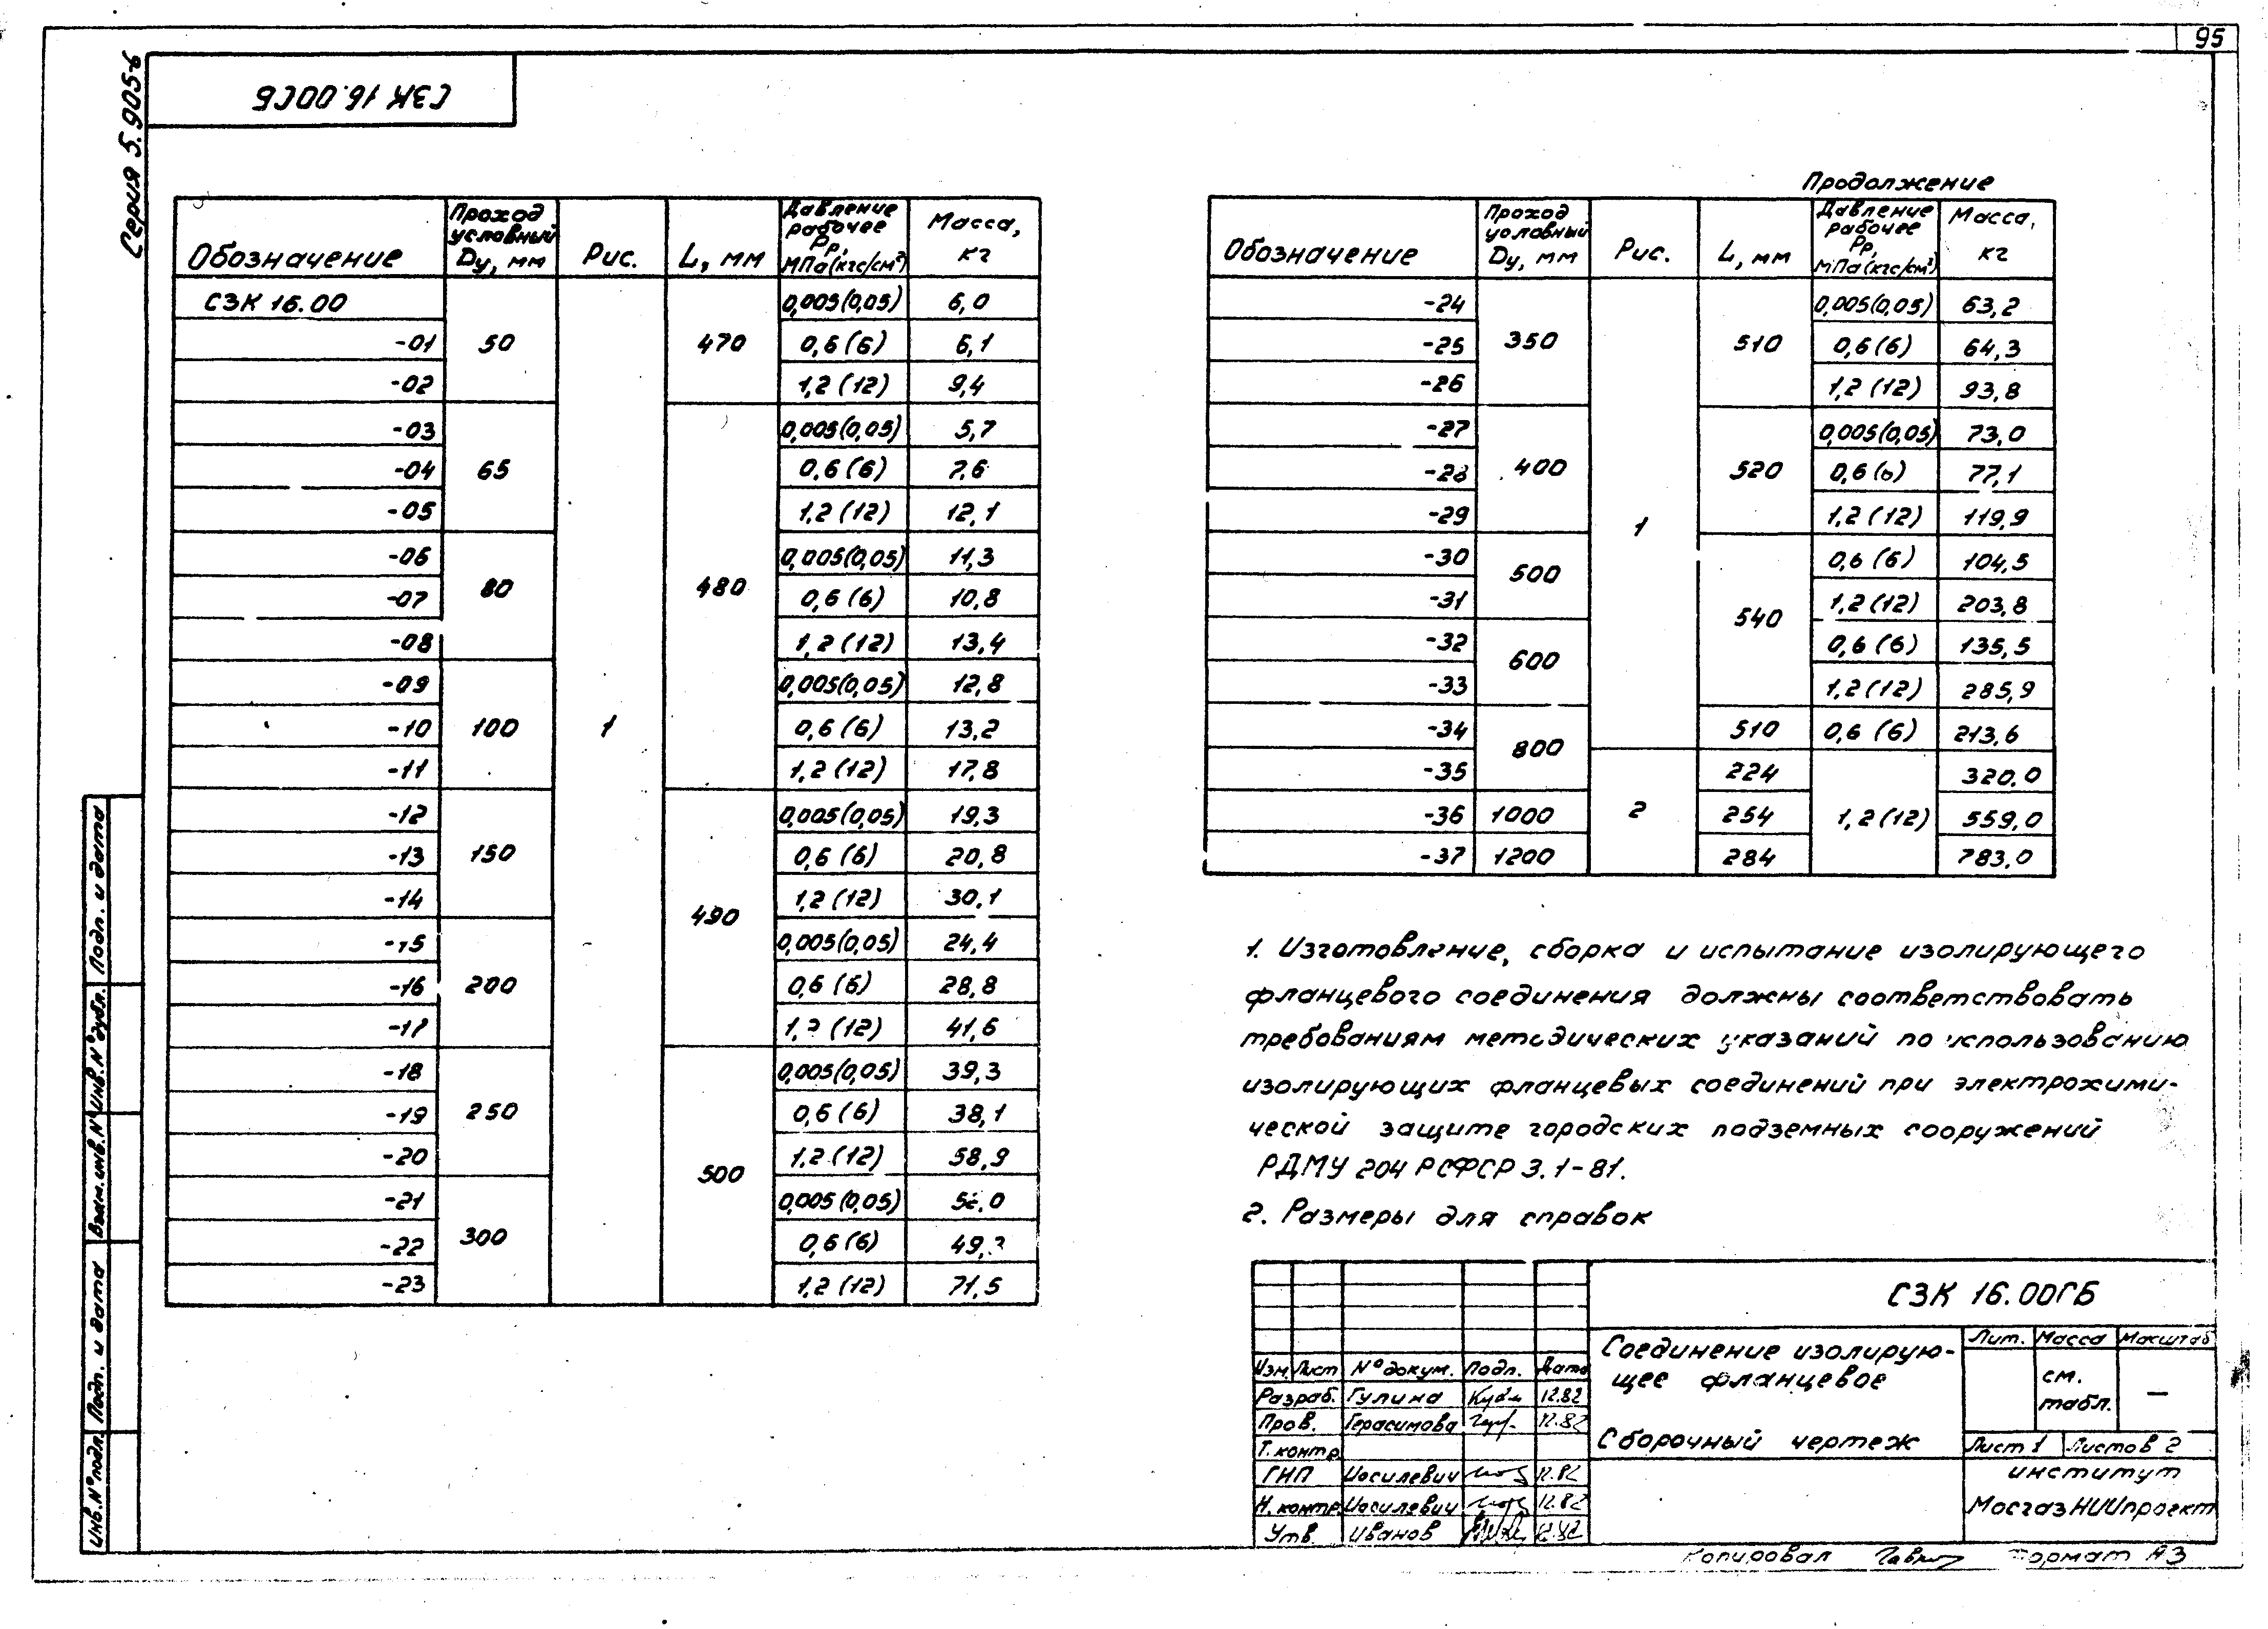 95
Серия 5.905-6
СЗК 16.00СБ
Обозначение | Проход условный Dу, мм | Рис. | L, мм | Давление рабочее Рр, МПа (кгс/см²) | Масса, кг
СЗК 16.00 | 50 | 1 | 470 | 0,005(0,05) | 6,0
-01 | 0,6 (6) | 6,1
-02 | 1,2 (12) | 9,4
-03 | 65 | 480 | 0,005(0,05) | 5,7
-04 | 0,6 (6) | 7,6
-05 | 1,2 (12) | 12,1
-06 | 80 | 0,005(0,05) | 11,3
-07 | 0,6 (6) | 10,8
-08 | 1,2 (12) | 13,4
-09 | 100 | 0,005(0,05) | 12,8
-10 | 0,6 (6) | 13,2
-11 | 1,2 (12) | 17,8
-12 | 150 | 490 | 0,005(0,05) | 19,3
-13 | 0,6 (6) | 20,8
-14 | 1,2 (12) | 30,1
-15 | 200 | 0,005(0,05) | 24,4
-16 | 0,6 (6) | 28,8
-17 | 1,2 (12) | 41,6
-18 | 250 | 500 | 0,005(0,05) | 39,3
-19 | 0,6 (6) | 38,1
-20 | 1,2 (12) | 58,9
-21 | 300 | 0,005(0,05)
-22 | 0,6 (6)
-23 | 1,2 (12) | 71,5
Продолжение
Обозначение | Проход условный Dу, мм | Рис. | L, мм | Давление рабочее Рр, МПа (кгс/см²) | Масса, кг
-24 | 350 | 1 | 510 | 0,005(0,05) | 63,2
-25 | 0,6 (6) | 64,3
-26 | 1,2 (12) | 93,8
-27 | 400 | 520 | 0,005(0,05) | 73,0
-28 | 0,6 (6) | 77,1
-29 | 1,2 (12) | 119,9
-30 | 500 | 540 | 0,6 (6) | 104,5
-31 | 1,2 (12) | 203,8
-32 | 600 | 0,6 (6) | 135,5
-33 | 1,2 (12) | 285,9
-34 | 800 | 510 | 0,6 (6) | 213,6
-35 | 2 | 224 | 1,2 (12) | 320,0
-36 | 1000 | 254 | 559,0
-37 | 1200 | 284 | 783,0
1. Изготовление, сборка и испытание изолирующего
фланцевого соединения должны соответствовать
требованиям методических указаний по использованию
изолирующих фланцевых соединений при электрохими-
ческой защите городских подземных сооружений
РДМУ 204 РСФСР 3.1-81.
2. Размеры для справок
СЗК 16.00СБ
Соединение изолирую-
щее фланцевое
Сборочный чертеж
Лит. | Масса | Масштаб
см. табл. | —
Лист 1 | Листов 2
институт
МосгазНИИпроект
Изм. | Лист | № докум. | Подп. | Дата
Разраб. | Гулина | 12.82
Пров. | Герасимова | 12.82
Т. контр.
ГИП | Иосилевич | 12.82
Н. контр. | Иосилевич | 12.82
Утв. | Иванов | 12.82
Копировал
Формат А3
Инв. № подл. | Подп. и дата | Взам. инв. № | Инв. № дубл. | Подп. и дата